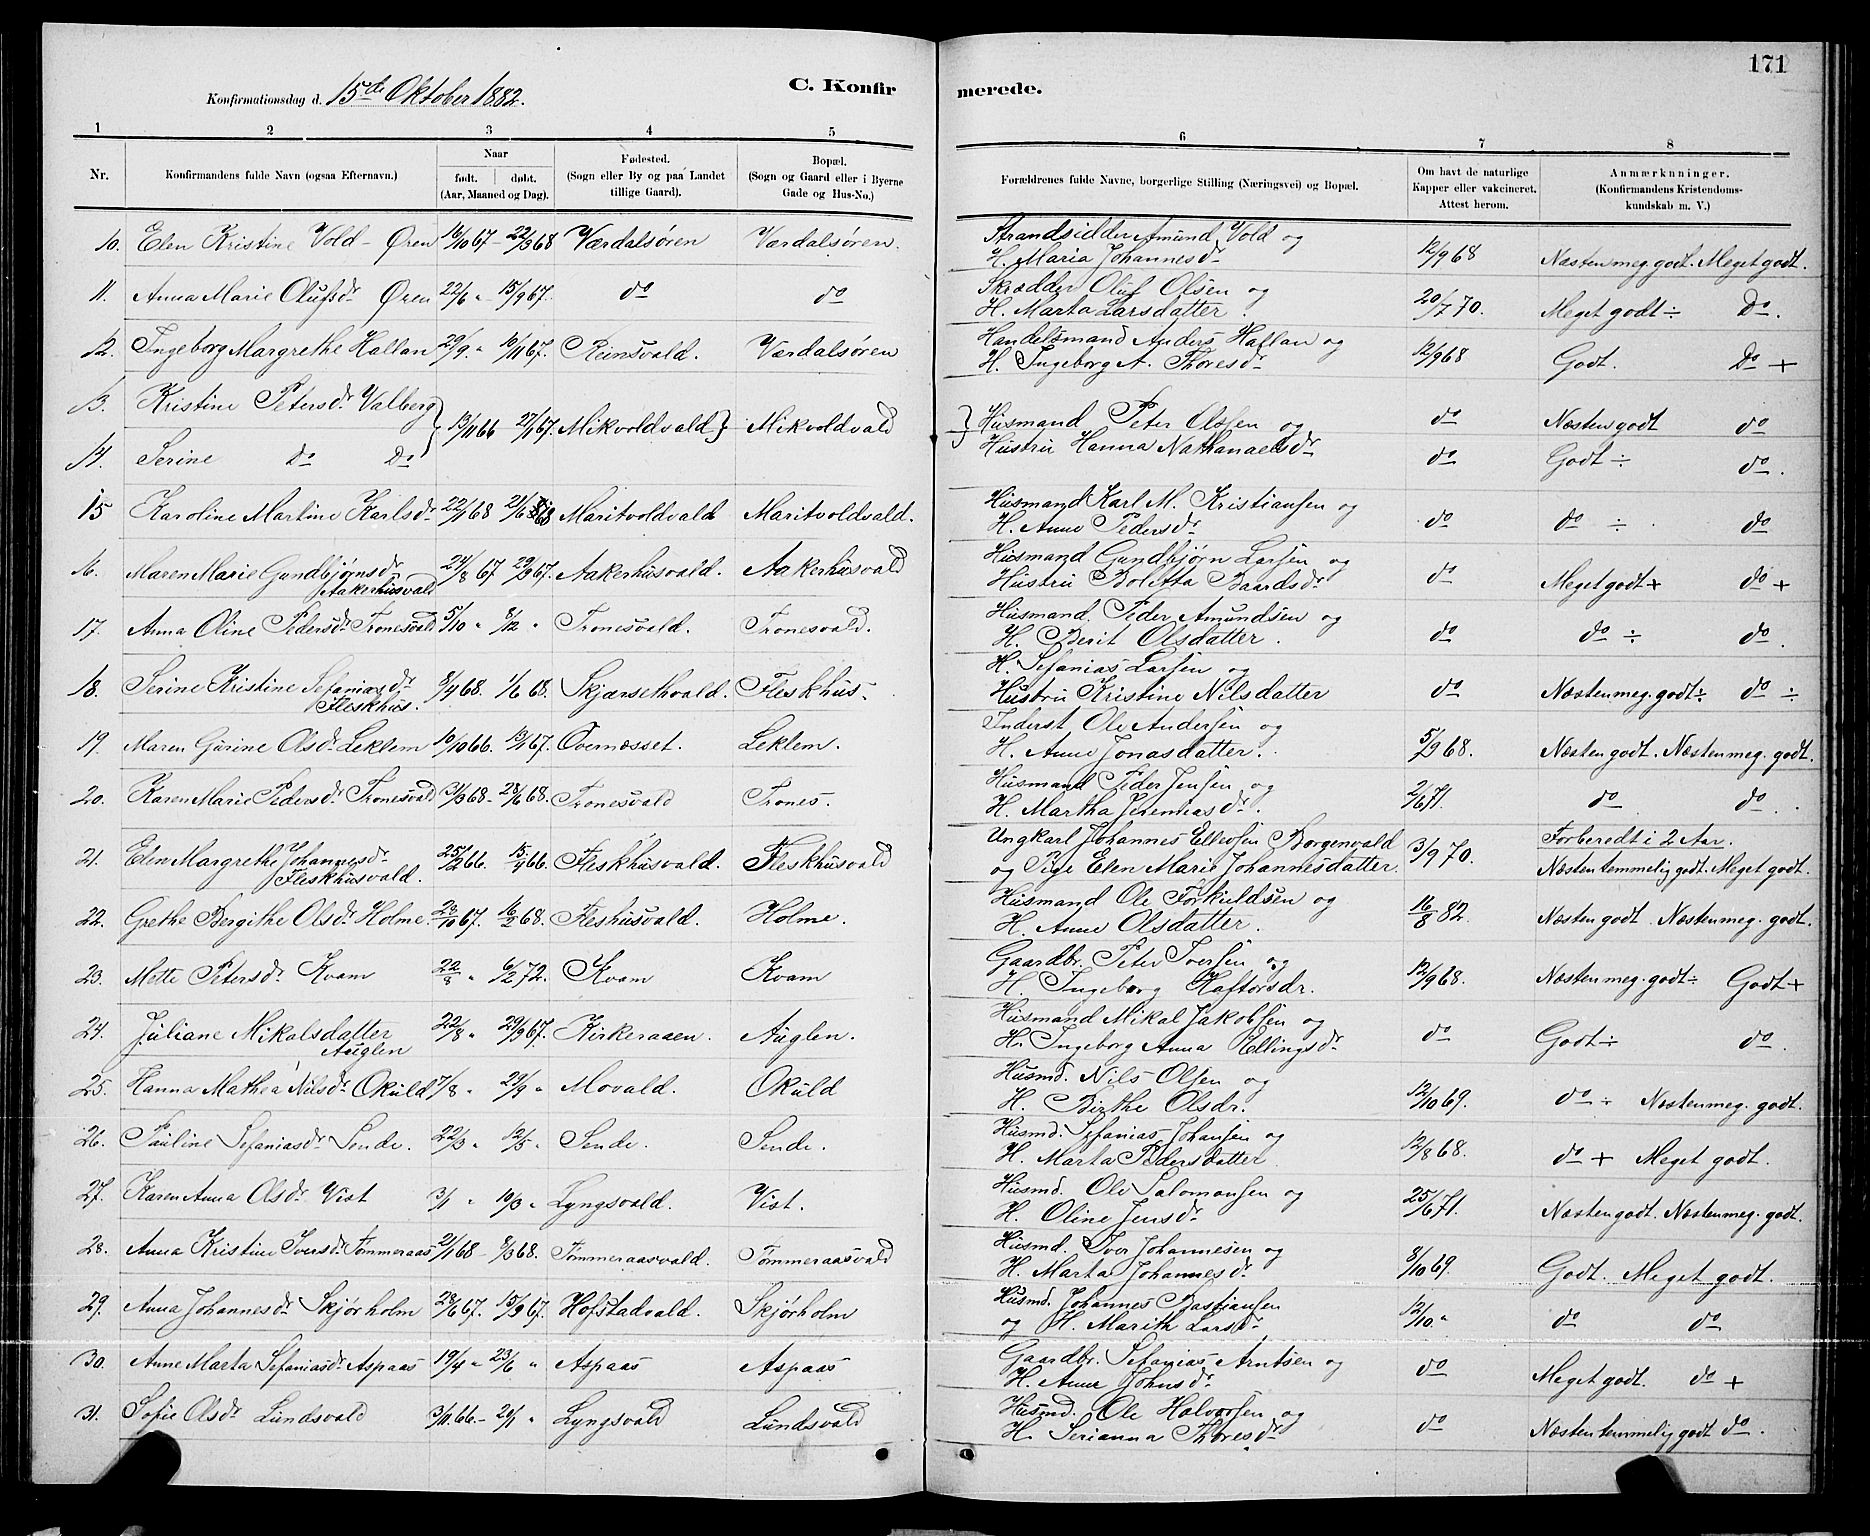 171
Konfirmationsdag d. 15de Oktober 1882.
C. Konfirmerede.
1 2 3 4 5 6 7 8
Nr.
Konfirmandens fulde Navn (ogsaa Efternavn.)
Naar
født. døbt.
(Aar, Maaned og Dag).
Fødested.
(Sogn eller By og paa Landet
tillige Gaard).
Bopæl.
(Sogn og Gaard eller i Byerne
Gade og Hus-No.)
Forældrenes fulde Navne, borgerlige Stilling (Næringsvei) og Bopæl.
Om havt de naturlige
Kapper eller vakcineret.
Attest herom.
Anmærkninger.
(Konfirmandens Kristendoms-
kundskab m. V.)
10. Elen Kristine Vold - Øren 16/10 67 - 22/3 68 Værdalsøren Værdalsøren. Strandsidder Amund Vold og
H. Maria Johannesdr 12/9 68 Næsten meg. godt. Meget godt.
11. Anna Marie Olufsdr Øren 22/6 " 15/9 67. do do Skrædder Oluf Olsen og
H. Marta Larsdatter. 20/7 70. Meget godt ÷ Do.
12. Ingeborg Margrethe Hallan 29/9. " 10/11 67. Reinsvald. Værdalsøren Handelsmand Anders Hallan og
H. Ingeborg A. Thoresdr 12/9 68 Godt. Do +
13. Kristine Petersdr Valberg 13/11 66 27/1 67. Mikvoldvald Mikvoldvald Husmand Peter Olsen og do Næsten godt do
14. Serine do Do Hustru Hanna Nathanaelsdr do Godt ÷ do.
15 Karoline Martine Karlsdr 22/1 68 21/6 68 Maritvoldvald Maritvoldvald. Husmand Karl M. Kristiansen og
H. Anne Pedersdr do do ÷ do
16. Maren Marie Gundbjørnsdr
Aakerhusvald 24/8 67 29/9 67. Aakerhusvald. Aakerhusvald Husmand Gundbjørn Larsen og
Hustru Boletta Baardsdr do Meget godt + do +
17. Anna Oline Pedersdr Tronesvald 5/10 " 8/12 " Tronesvald. Tronesvald. Husmand Peder Amundsen og
H. Berit Olsdatter. do do ÷ do.
18. Serine Kristine Sefaniasdr
Fleskhus. 8/4 68. 1/6 68. Skjærsetvald. Fleskhus. H. Sefanias Larsen og
Hustru Kristine Nilsdatter do Næsten meg. godt ÷ do ÷
19. Maren Gurine Olsdr Leklem 10/10 66. 13/1 67. Overnæsset. Leklem. Inderst Ole Andersen og
H. Anne Jonasdatter. 5/9 68. Næsten godt. Næsten meg. godt.
20. Karen Marie Pedersdr Tronesvald 31/3 68 - 28/6 68. Tronesvald Trones. Husmand Peder Jensen og
H. Martha Jeremiasdr. 2/6 71. do do.
21. Elen Margrethe Johannesdr
Fleskhusvald. 25/2 66. 15/4 66. Fleskhusvald. Fleskhusvald Ungkarl Johannes Ellevsen Borgenvald
og Pige Elen Marie Johannesdatter. 3/9 70. Forberedt i 2 Aar.
Næsten temmelig godt. Meget godt.
22. Grethe Bergithe Olsdr Holme. 23/10 67. 16/2 68. Fleshusvald. Holme. Husmand Ole Torkildsen og
H. Anne Olsdatter. 16/8 82. Næsten godt. Næsten meg. godt.
23. Mette Petersdr Kvam 22/8 " 6/2 72. Kvam Kvam Gaardbr. Peter Iversen og
H. Ingeborg Haftorsdr. 12/9 68. Næsten meg. godt ÷ Godt +
24. Juliane Mikalsdatter
Auglen 22/8 " 29/9 67. Kirkeraaen. Auglen. Husmand Mikal Jakobsen og
H. Ingeborg Anna Ellingsdr do Godt ÷ do.
25. Hanna Mathea Nilsdr Okuld 7/8 " 29/9 " Movald. Okuld Husmd. Nils Olsen og
H. Birthe Olsdr. 12/10 69. do ÷ Næsten meg. godt.
26. Pauline Sefaniasdr Sende. 22/3 " 12/5 " Sende. Sende. Husmd. Sefanias Johansen og
H. Marta Pedersdatter 12/8 68. do + Meget godt.
27. Karen Anna Olsdr Vist 3/1 " 10/3 " Lyngsvald. Vist. Husmd. Ole Salomonsen og
H. Oline Jensdr 25/6 71. Næsten godt. Næsten meg. godt.
28. Anna Kristine Iversdr Tømmeraas 21/1 68 - 8/3 68. Tømmeraasvald. Tømmeraasvald Husmd. Iver Johannesen og
H. Marta Johannesdr 8/10 69. Godt. Meget godt.
29. Anna Johannesdr Skjørholm 28/6 67. 15/9 67. Hofstadvald. Skjørholm Husmd. Johannes Bastiansen
og H. Marith Larsdr 12/10 " do do
30. Anne Marta Sefaniasdr Aspaas 19/4 " 23/6 " Aspaas Aspaas Gaardbr. Sefanias Arntsen og
H. Anne Johnsdr do Meget godt. do +
31. Sofie Olsdr Lundsvald 3/11 66. - 20/1 " Lyngsvald Lundsvald Husmd. Ole Halvorsen og
H. Serianna Thoresdr do Næsten temmelig godt do.